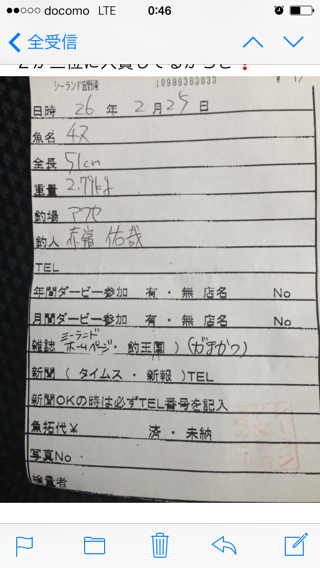 docomo LTE 0:46
全受信
シーランド宜野湾 :0989363033
日時 26 年 2 月 25 日
魚名 4ヌ
全長 51cm
重量 2.79kg
釣場 アワセ
釣人 赤嶺 佑哉
TEL
年間ダービー参加 有・無 店名 No
月間ダービー参加 有・無 店名 No
雑誌 シーランドホームページ・釣王国 ) (がまかつ)
新聞 ( タイムス・新報 )TEL
新聞OKの時は必ずTEL番号を記入
魚拓代¥ 済・未納
写真No
検量者